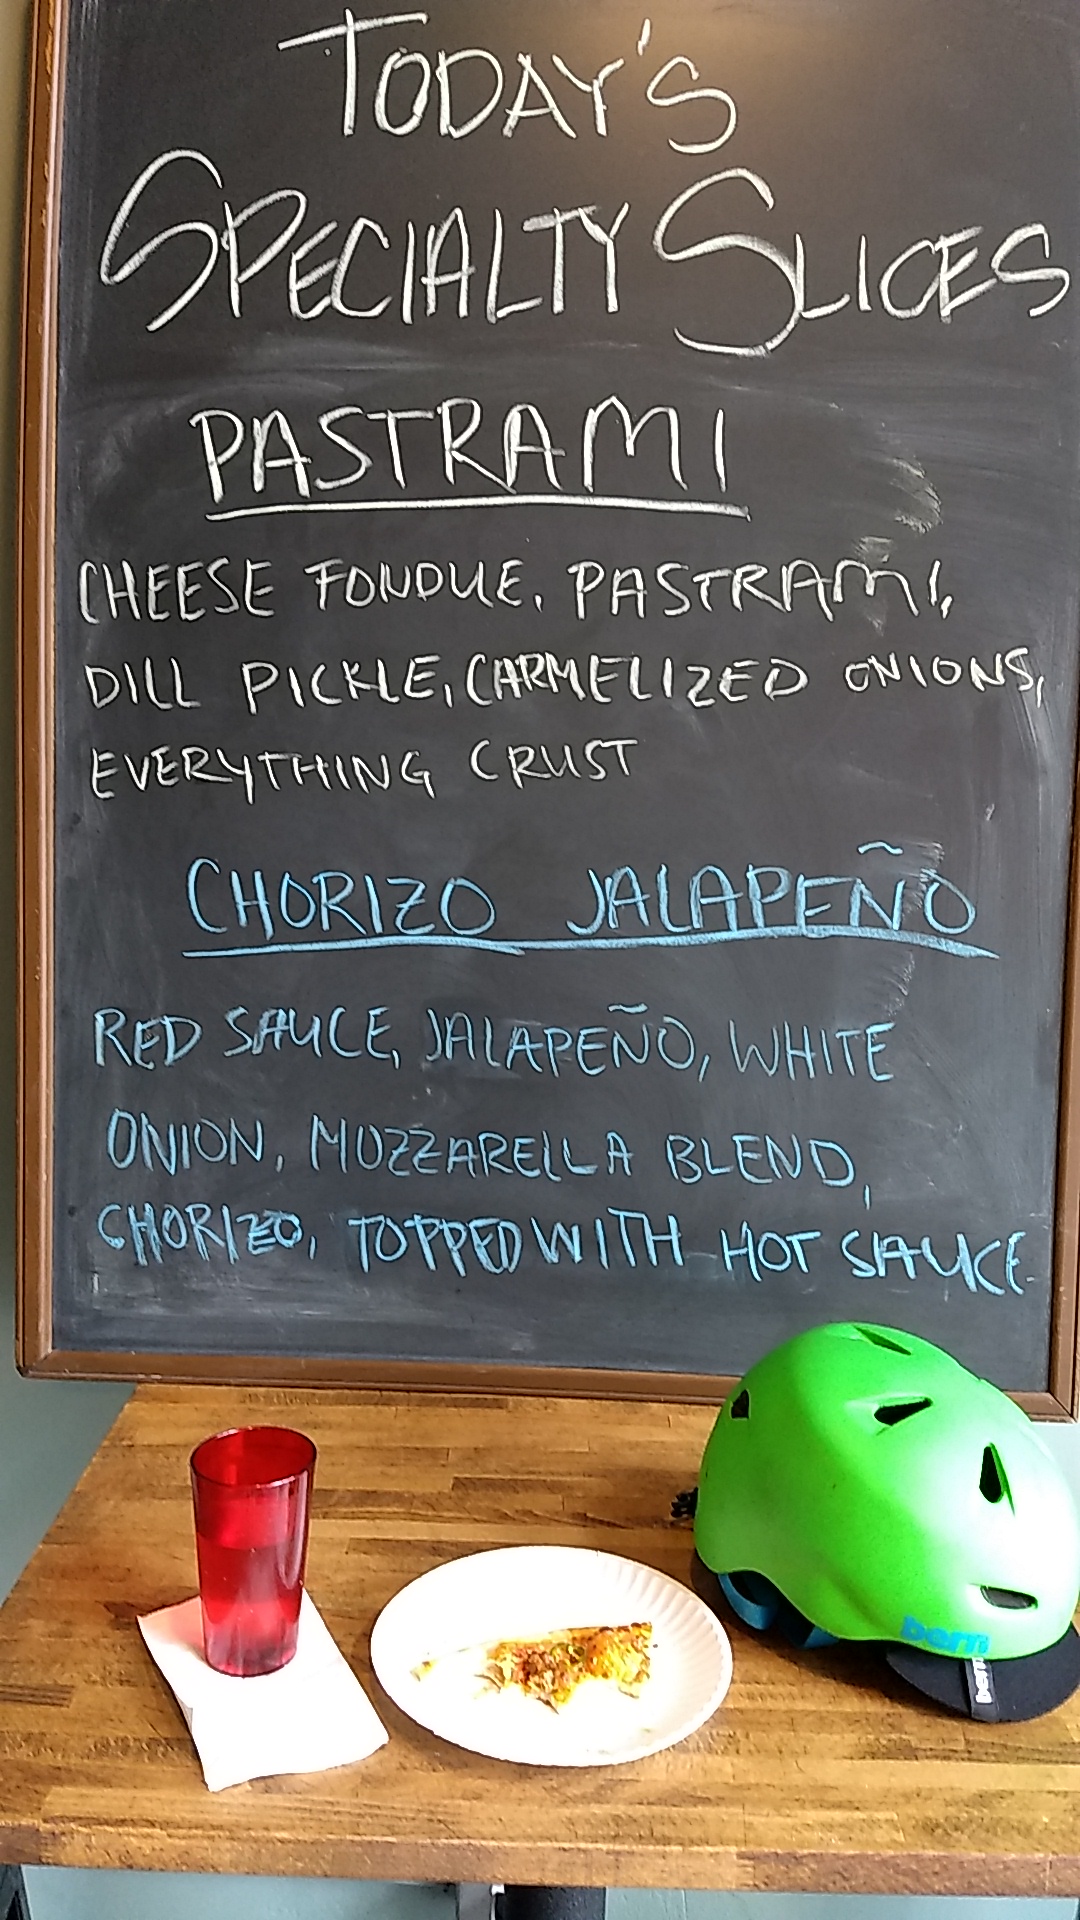 TODAY'S
SPECIALTY SLICES
PASTRAMI
CHEESE FONDUE, PASTRAMI,
DILL PICKLE, CARMELIZED ONIONS,
EVERYTHING CRUST
CHORIZO JALAPEÑO
RED SAUCE, JALAPEÑO, WHITE
ONION, MOZZARELLA BLEND,
CHORIZO, TOPPED WITH HOT SAUCE.
bern
bern